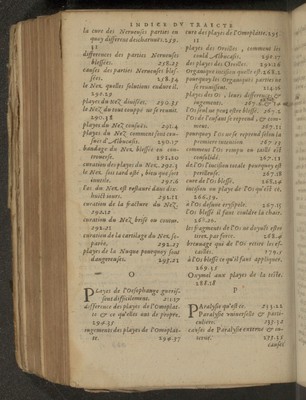 INDICE DU TRAICTE
la cure des Nerueuses parties en
quoy different des charneuses. 259.
31
differences des parties Nerueuses
blessées. 258.23
causes des parties Nerueuses bles-
sées. 258.34
le Nez, quelles solutions endure il.
290.29
playes du nez diuisées. 290.35
le Nez du tout couppé ne se reunit.
290.38
playes du Nez contuses. 291.4
playes du Nez comment sont con-
suës d'Albucasis. 291.17
bandage du Nez blessée en con-
trauerse.
curation des playes du Nez. 292.3
le Nez sois tard osté, bien que soit
inutile.
les du Nez est restauré dans dix-
huict iours.
curation de la fracture du Nez.
292.19
curation du Nez brisé en contus.
292.21
curation de la cartilage du Nez se-
parée. 292.23
playes de la Nuque pourquoy sont
dangereuses. 295.21
O
PLayes de l'Oesophague gueris-
sent difficilement.
difference des playes de l'Omoplat-
te & ce qu'elles ont de propre.
294.35
iugements des playes de l'Omoplat-
te. 294.37
cure des playes de l'Omoplatte. 295.
11
playes des Oreilles, comment les
coud Albucasis. 291.17
cure des playes des Oreilles. 291.26
Organique incision quelle est. 268.2
pourquoy les Organiques parties ne
se reunissent.
playes des Os, leurs differences, &
iugements.
l'Os seul ne peut estre blessé.
l'Os de l'enfant se reprend, & com-
ment. 267.11
pourquoy l'Os ne se reprend selon la
premiere intention 267.13
comment l'Os rompu ou taillé est
consolidé. 267.18
de l'Os l'incision totale pourquoy est
perilleuse. 267.28
cure de l'Os blessé. 268.29
incision ou playe de l'Os qu'est ce.
266.39
à l'Os desnué erysipele. 267.35
l'Os blessé il faut couldre la chair.
les fragments de l'Os ne doyuent estre
tirez par force. 268.4
breuuage qui de l'Os retire les es-
cailles.
à l'Os blessé ce qu'il faut appliquer.
269.35
Oxymel aux playes de la teste.
288.18
P
PAralysie qu'est ce. 233.22
Paralysie vniuerselle & parti-
culiere.
causes de Paralysie externe & in-
terne. 235.35
causes